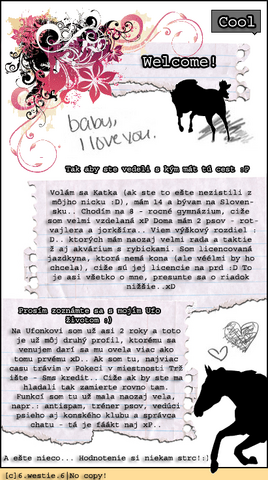 Cool
Welcome!
baby,
I love you.
Tak aby ste vedeli s kým mát ti cest :P
Volám sa Katka (ak ste to ešte nezistili z
môjho nicku :D), mám 14 a bývam na Sloven-
sku.. Chodím na 8 - rocné gymnázium, ciže
som velmi vzdelaná xP Doma mám 2 psov - rot-
vajlera a jorkšíra.. Viem výškový rozdiel :
D.. ktorých mám naozaj velmi rada a taktie
ž aj akvárium s rybickami. Som licencovaná
jazdkyna, ktorá nemá kona (ale véélmi by ho
chcela), cíže sú jej licencie na prd :D To
je asi všetko o mne, presunte sa o riadok
nižšie..XD
Prosím zoznámte sa s mojím Ufo
životom :)
Na Ufonkovi som už asi 2 roky a toto
je už môj druhý profil, ktorému sa
venujem darí sa mu ovela viac ako
tomu prvému xD.. Ak som tu, najviac
casu trávim v Pokeci v miestnosti Trž
ište - Sms kredit.. Cíže ak by ste ma
hladali tak zamierte rovno tam.
Funkcí som tu už mala naozaj vela,
napr.: antispam, tréner psov, vedúci
psieho aj konského klubu a správca
chatu - tá je fáákt naj xP..
A ešte nieco... Hodnotenie si niekam strc!:)
[c]6.westie.6|No copy!